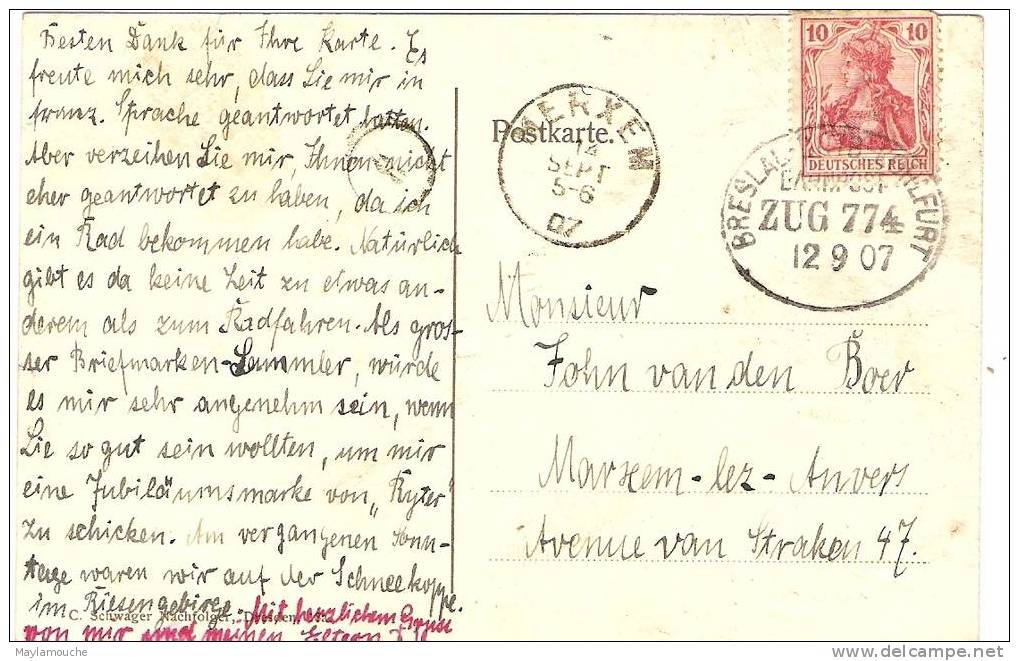 Besten Dank für Ihre Karte. Es
freute mich sehr, dass Sie mir in
franz. Sprache geantwortet hatten.
Aber verzeihen Sie mir, Ihnen nicht
eher geantwortet zu haben, da ich
ein Rad bekommen habe. Natürlich
gibt es da keine Zeit zu etwas an-
derem als zum Radfahren. Als gros-
ser Briefmarken-Sammler, würde
es mir sehr angenehm sein, wenn
Sie so gut sein wollten, um mir
eine Jubiläumsmarke von „Ryter“
zu schicken. Am vergangenen Sonn-
tage waren wir auf der Schneekoppe
im Riesengebirge. Mit herzlichem Gruss
von mir und meinen Eltern
C. Schwager Nachfolger, Dresden
Postkarte.
MERXEM
14
SEPT
5-6
07
10 10
DEUTSCHES REICH
BAHNPOST
ZUG 774
12 9 07
Monsieur
John van den Boer
Marxem-lez-Anvers
Avenue van Straken 47.
Maylamouche
delcampe.net